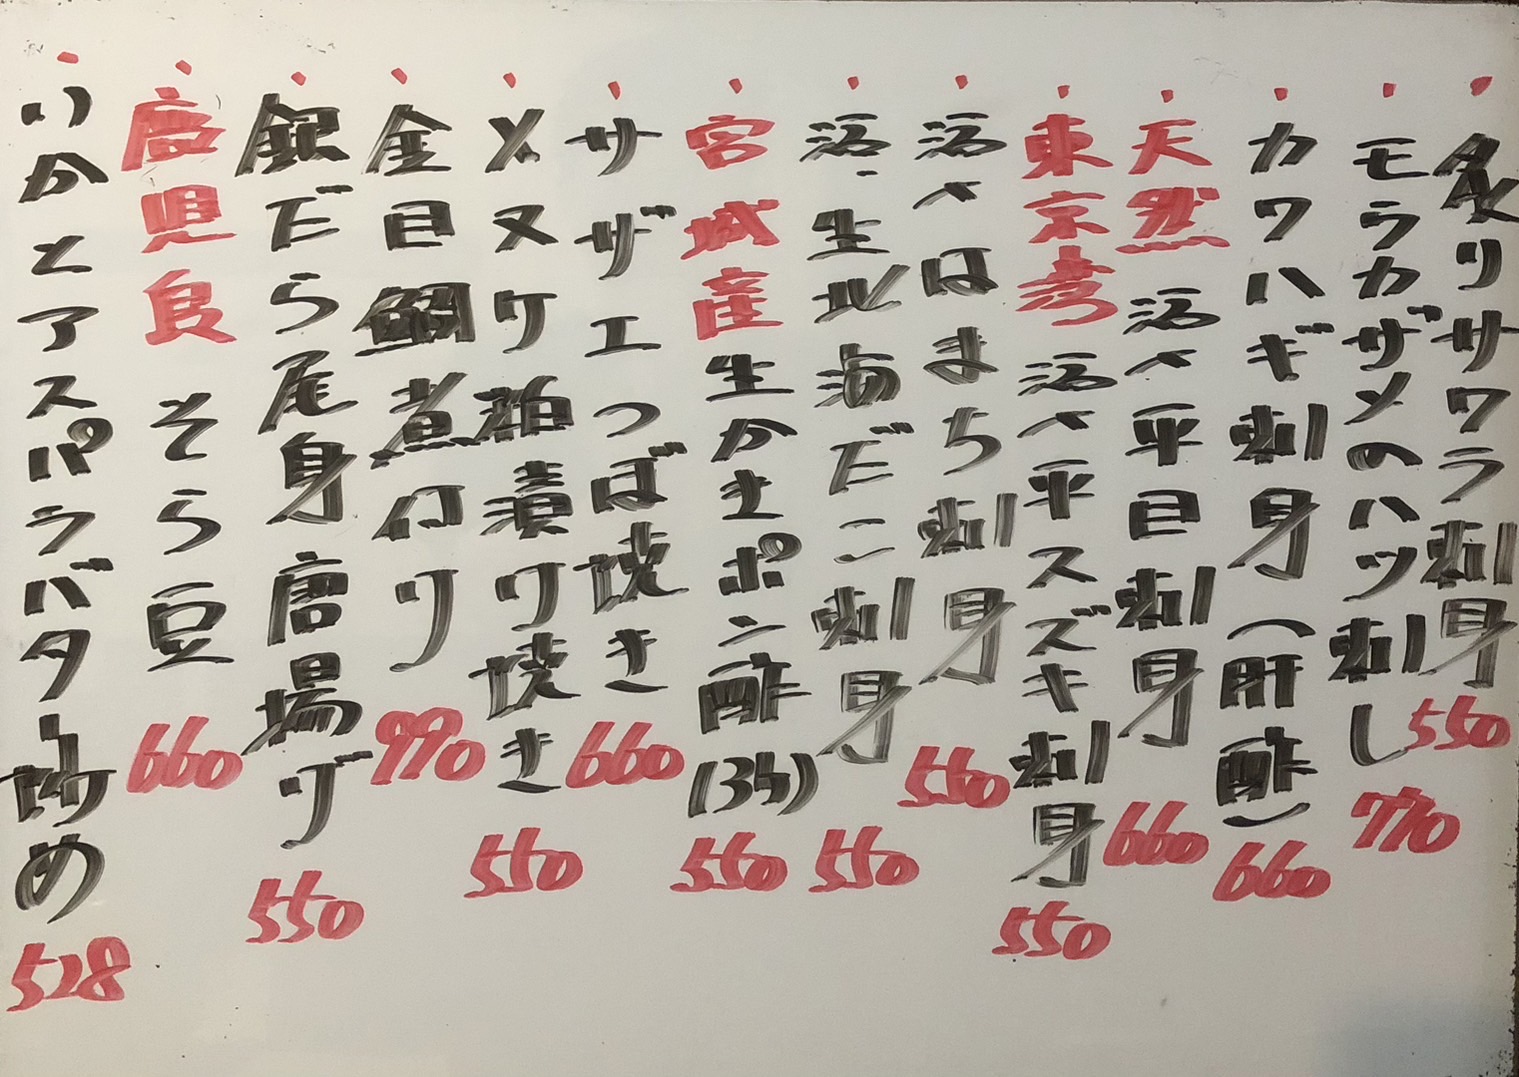 ・炙りサワラ刺身 550
・モウカザメのハツ刺し 770
・カワハギ刺身(肝酢) 660
・天然活〆平目刺身 660
・東京湾活〆平スズキ刺身 550
・活〆はまち刺身 550
・活・生北海だこ刺身 550
・宮城産生かきポン酢(3ヶ) 550
・サザエつぼ焼き 660
・メヌケ粕漬け焼き 550
・金目鯛煮付け 990
・銀だら尾身唐揚げ 550
・鹿児島そら豆 660
・いかとアスパラバター炒め 528